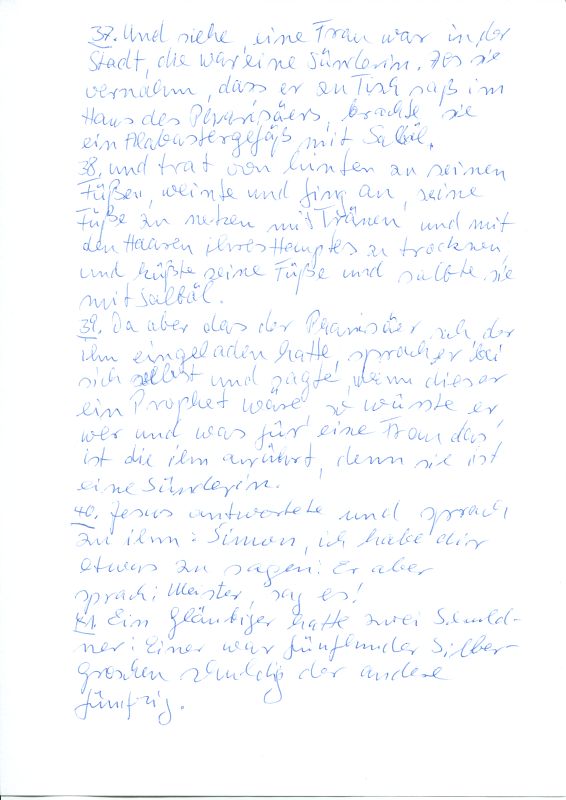 37. Und siehe, eine Frau war in der
Stadt, die war eine Sünderin. Als sie
vernahm, dass er zu Tisch saß im
Haus des Pharisäers, brachte sie
ein Alabastergefäß mit Salböl.
38. und trat von hinten zu seinen
Füßen, weinte und fing an, seine
Füße zu netzen mit Tränen und mit
den Haaren ihres Hauptes zu trocknen
und küßte seine Füße und salbte sie
mit Salböl.
39. Da aber das der Pharisäer sah, der
ihn eingeladen hatte, sprach er bei
sich selbst und sagte, wenn dieser
ein Prophet wäre, so wüsste er,
wer und was für eine Frau das
ist die ihn anrührt, denn sie ist
eine Sünderin.
40. Jesus antwortete und sprach
zu ihm: Simon, ich habe dir
etwas zu sagen! Er aber
sprach: Meister, sag es!
41. Ein Gläubiger hatte zwei Schuld-
ner: Einer war fünfhunder Silber-
groschen schuldig der andere
fünfzig.